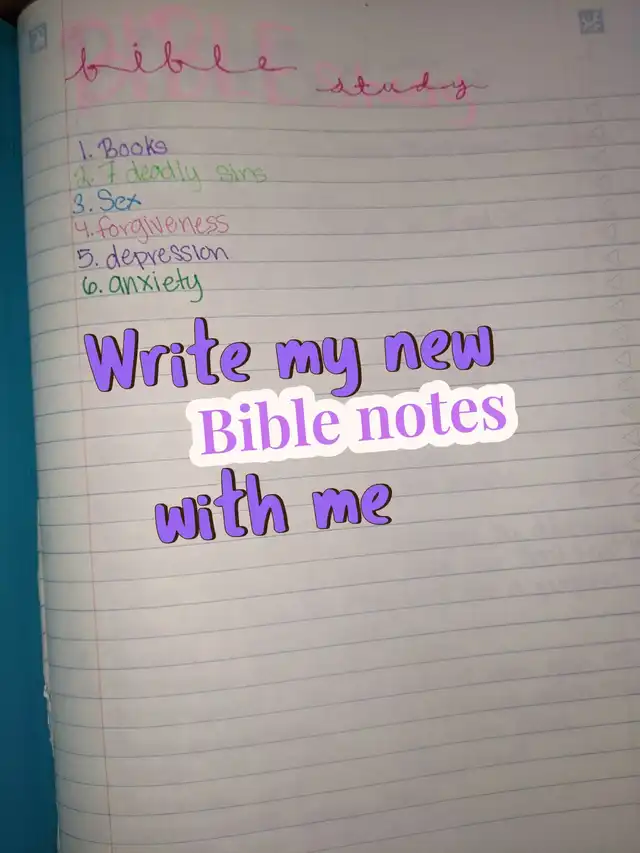 bible study
1. Books
2. 7 deadly sins
3. Sex
4. forgiveness
5. depression
6. anxiety
Write my new
Bible notes
with me